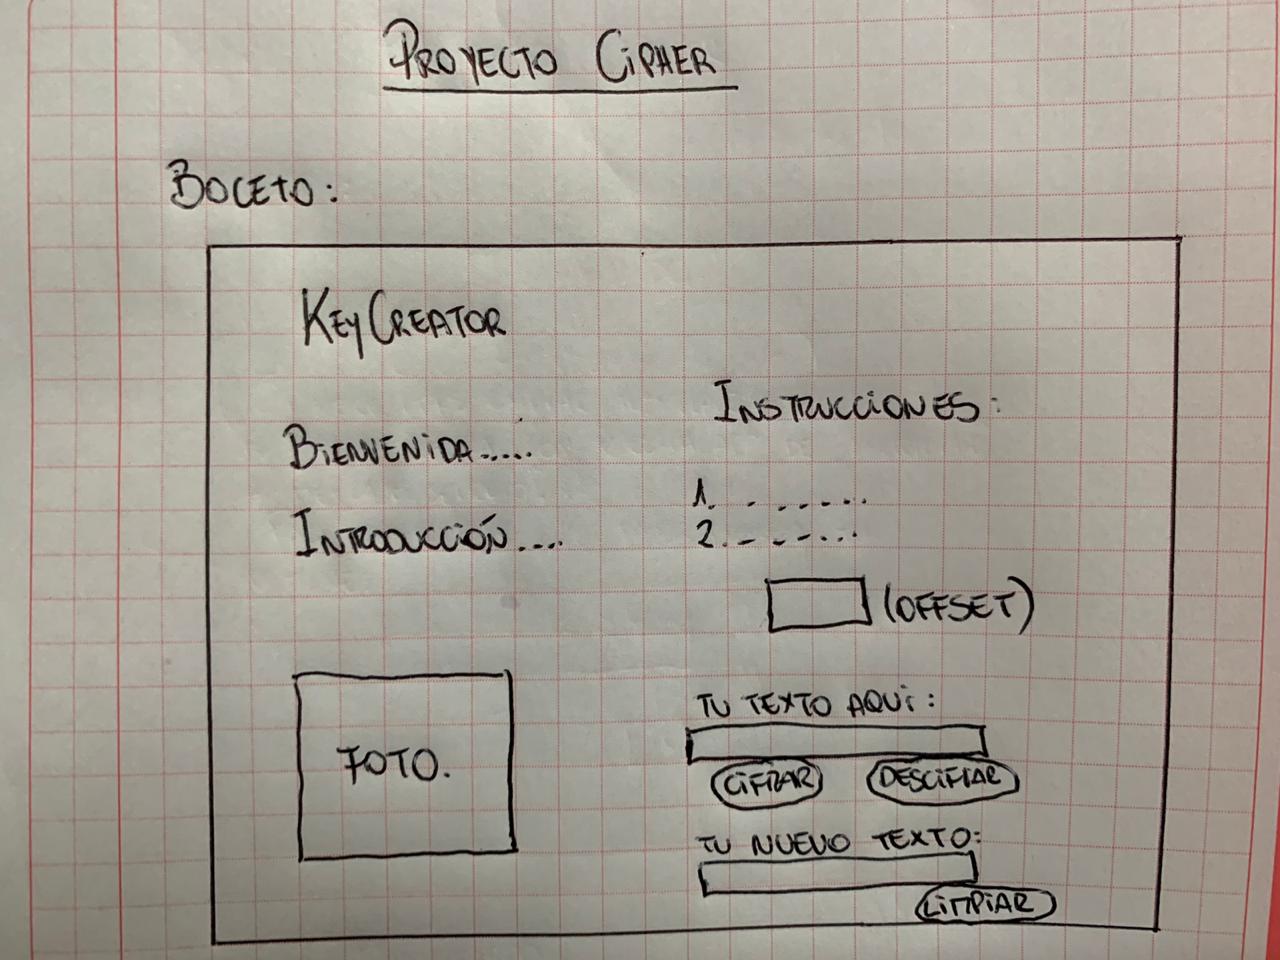 PROYECTO CIPHER
BOCETO:
KEYCREATOR
BIENVENIDA.....
INTRODUCCIÓN....
INSTRUCCIONES:
1. - - - - . . .
2. - - - - . . .
(OFFSET)
FOTO.
TU TEXTO AQUI:
CIFRAR DESCIFRAR
TU NUEVO TEXTO:
LIMPIAR